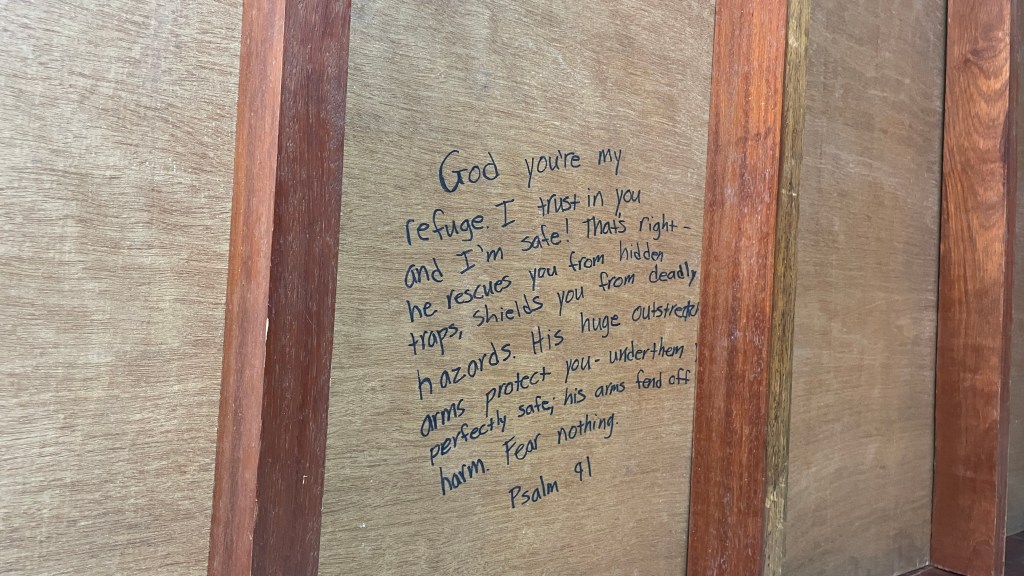 God you're my
refuge. I trust in you
and I'm safe! That's right-
he rescues you from hidden
traps, shields you from deadly
hazards. His huge
arms protect you- under them
perfectly safe; his arms fend off
harm. Fear nothing.
Psalm 91